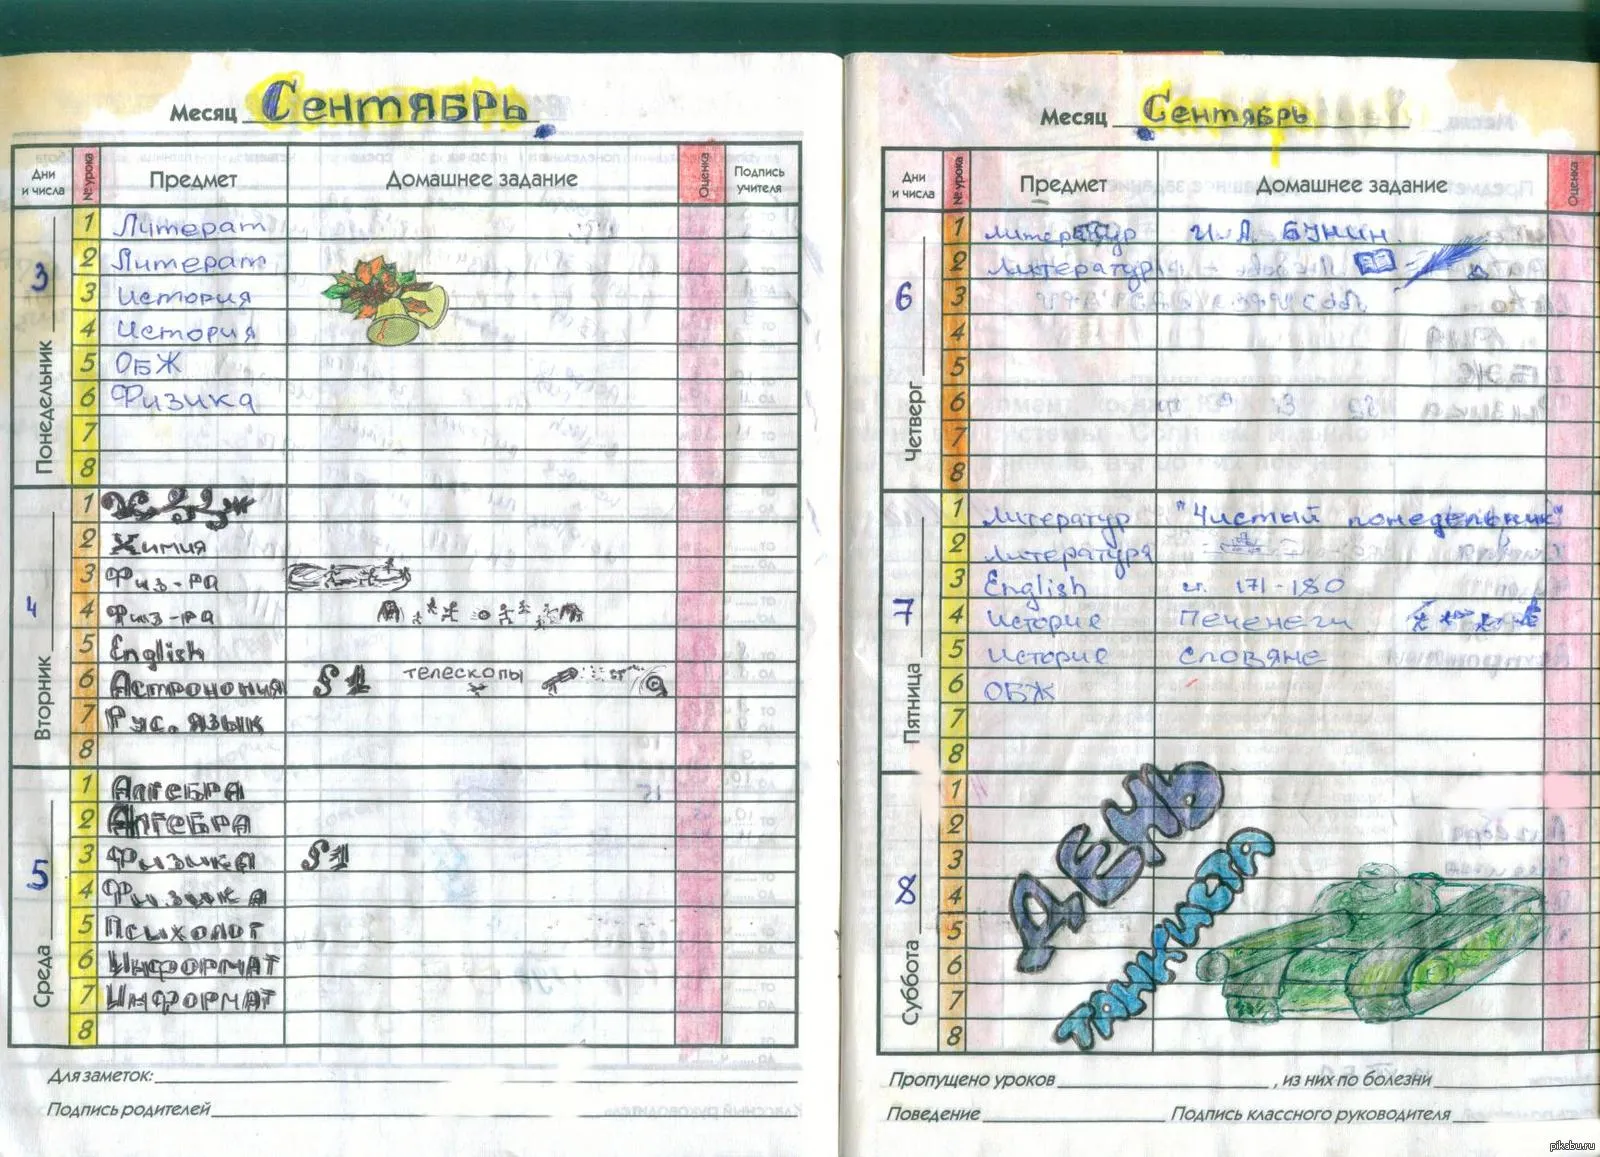 Месяц Сентябрь
Дни и числа № урока Предмет Домашнее задание Оценка Подпись учителя
Понедельник 3
1 Литерат
2 Литерат
3 История
4 История
5 ОБЖ
6 Физика
7
8
Вторник 4
1
2 Химия
3 Физ-ра
4 Физ-ра
5 English
6 Астрономия § 1 телескопы
7 Рус. язык
8
Среда 5
1 Алгебра
2 Алгебра
3 Физика § 1
4 Физика
5 Психолог
6 Информат
7 Информат
8
Для заметок:
Подпись родителей
Месяц Сентябрь
Дни и числа № урока Предмет Домашнее задание Оценка
Четверг 6
1 Литератур И. А. БУНИН
2 Литератур
3
4
5
6
7
8
Пятница 7
1 Литератур "Чистый понедельник"
2 Литература
3 English ст. 171-180
4 Историе Печенеги
5 Историе Словяне
6 ОБЖ
7
8
Суббота 8
1
2
3
4
5
6
7
8
ДЕНЬ
ТАНКИСТА
Пропущено уроков , из них по болезни
Поведение Подпись классного руководителя
pikabu.ru